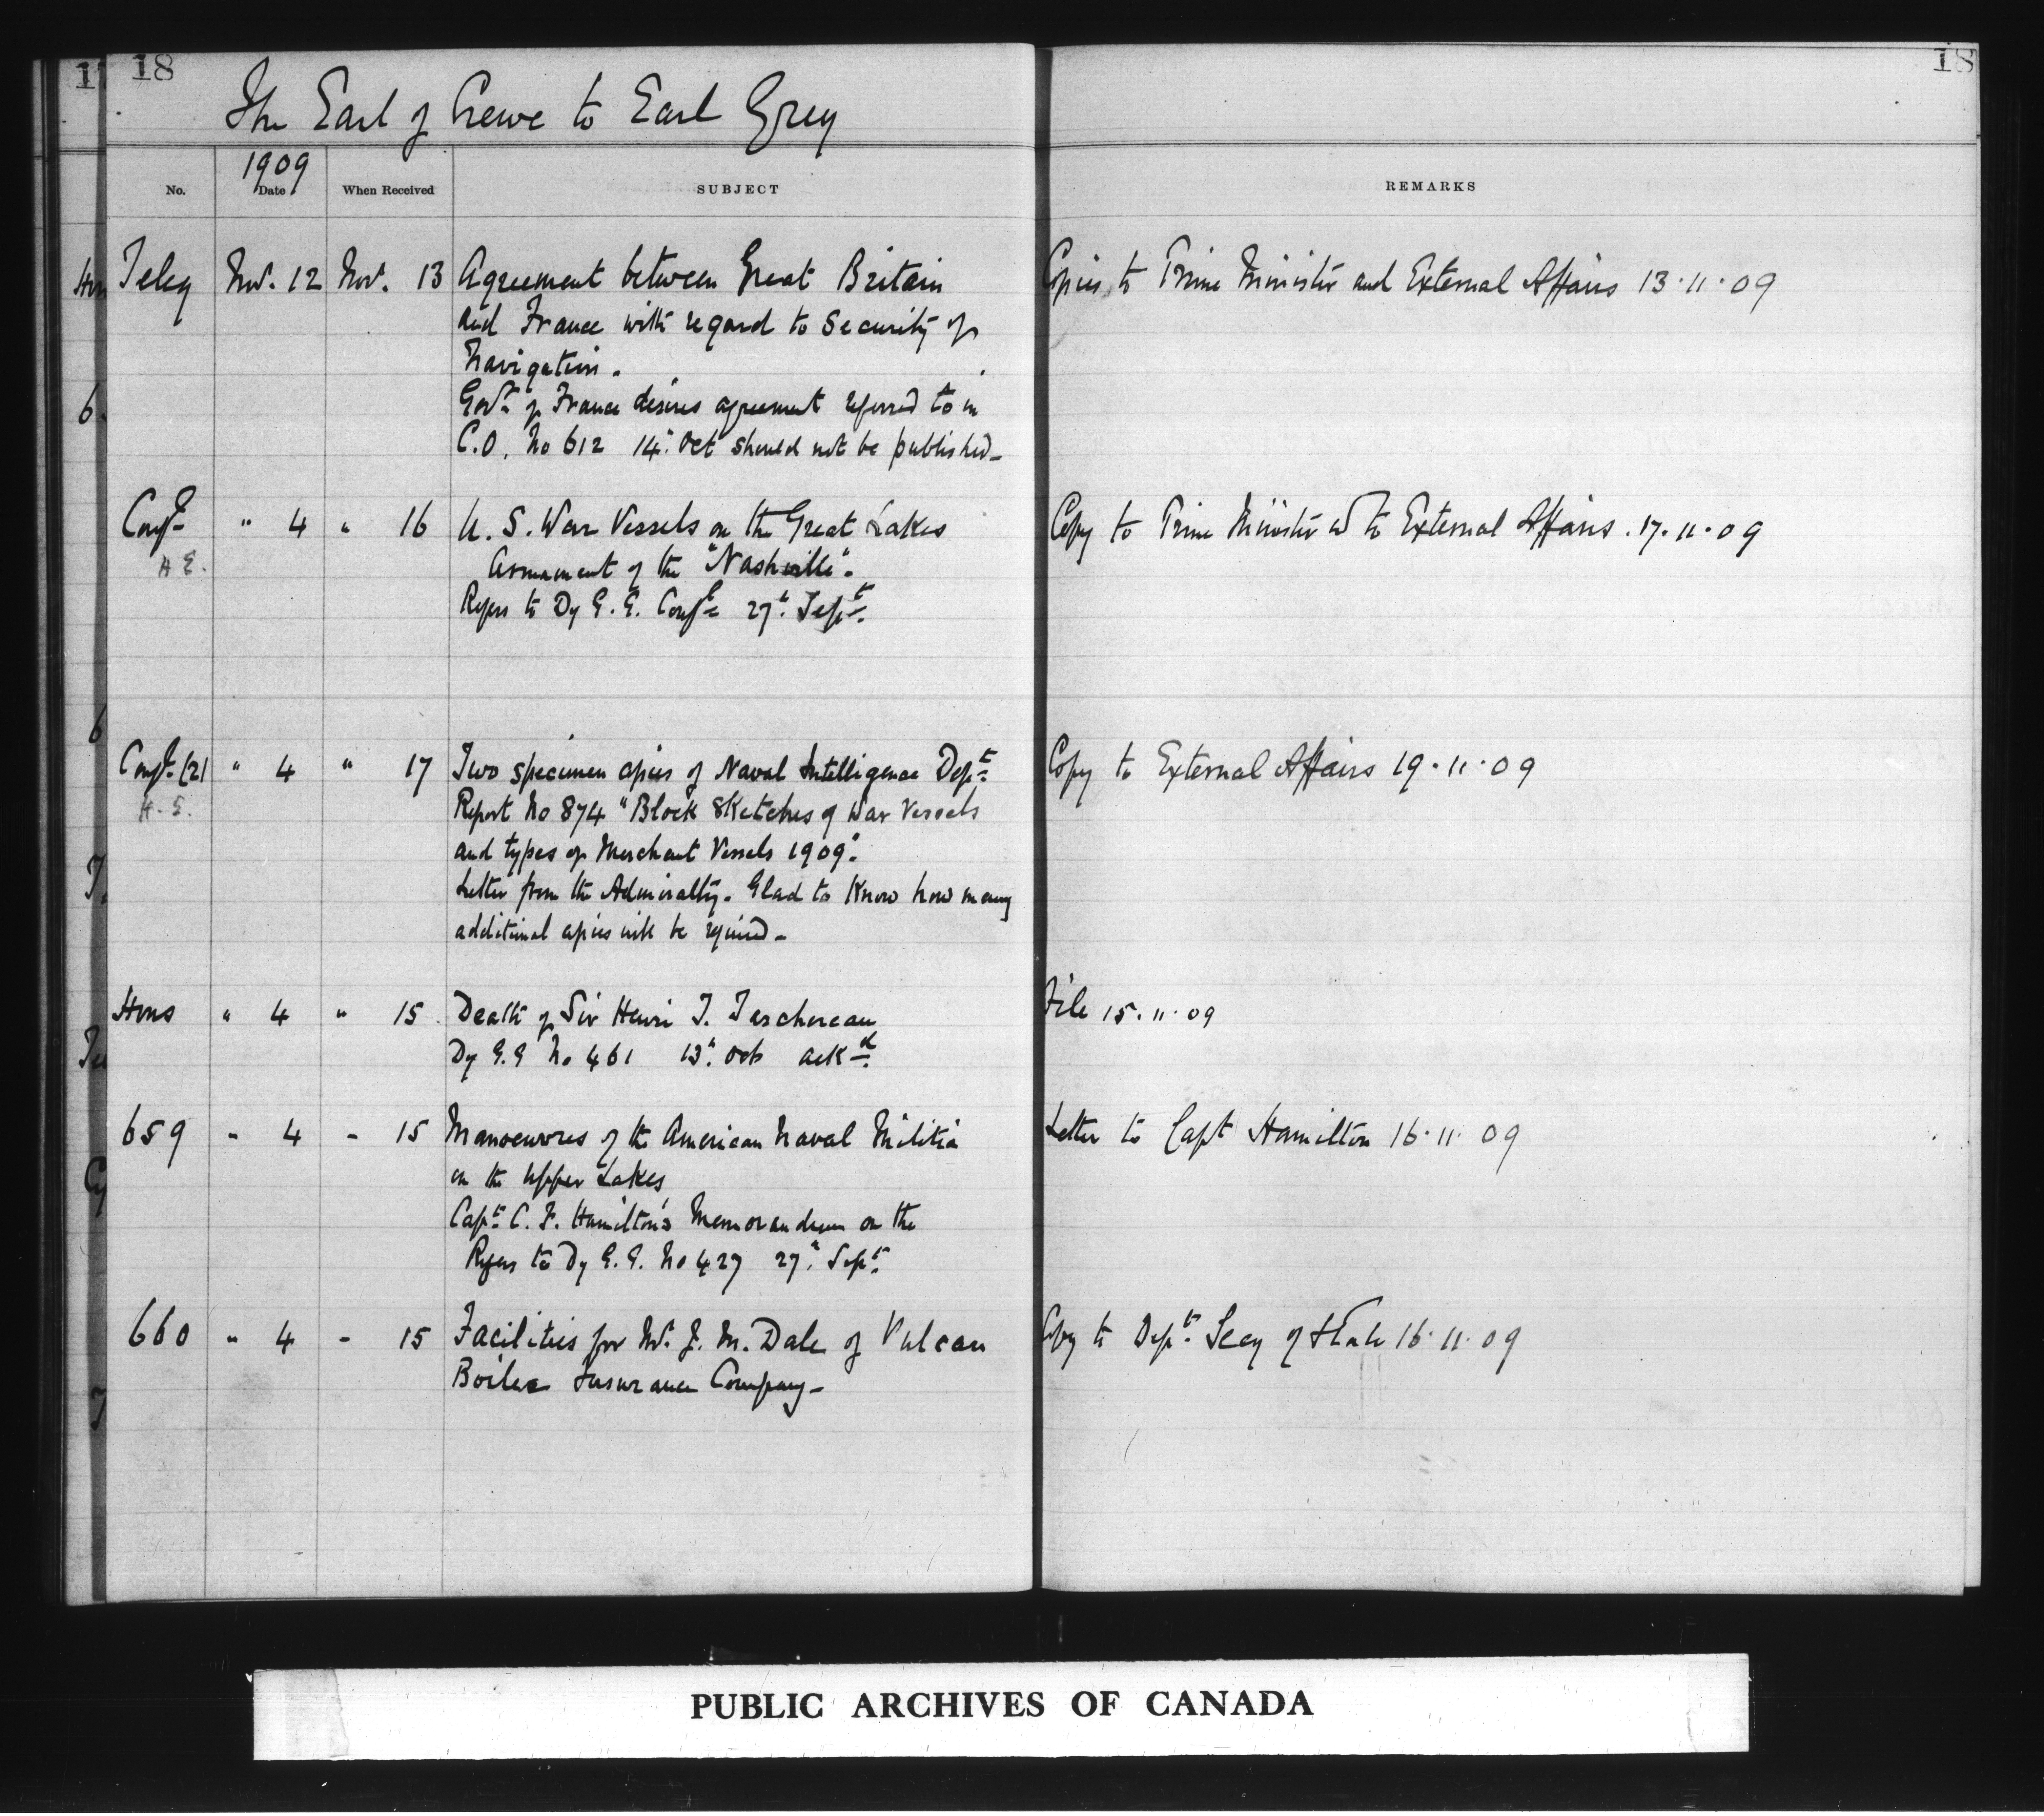 18
18
The Earl of Crewe to Earl Grey
1909
No. Date When Received SUBJECT REMARKS
Teleg Nov. 12 Nov. 13 Agreement between Great Britain Copies to Prime Minister and External Affairs 13.11.09
and France with regard to Security of
Navigation.
Govt of France desires agreement referred to in
C.O. No 612 14" Oct should not be published_
Conf.l " 4 " 16 U. S. War Vessels on the Great Lakes Copy to Prime Minister & to External Affairs. 17.11.09
H E. Armament of the "Nashville".
Refers to Dy G. G. Conf.l 27" Sept.
Conf.l (2) " 4 " 17 Two specimen copies of Naval Intelligence Dept. Copy to External Affairs 19.11.09
H. E. Report No 874 "Block Sketches of War Vessels
and types of Merchant Vessels 1909".
Letter from the Admiralty. Glad to know how many
additional copies will be required_
Hons " 4 " 15 Death of Sir Henri T. Taschereau File 15.11.09
Dy G.G No 461 13" Oct ackd.
659 - 4 - 15 Manoeuvres of the American Naval Militia Letter to Capt Hamilton 16.11.09
on the Upper Lakes
Capt. C. F. Hamilton's Memorandum on the
Refers to Dy G. G. No 427 27" Sept.
660 " 4 - 15 Facilities for Mr. J. M. Dale of Vulcan Copy to Dept. Secy of State 16.11.09
Boiler Insurance Company_
PUBLIC ARCHIVES OF CANADA